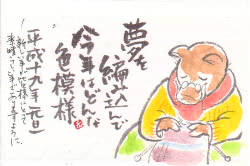 夢を
編込んで
今年はどんな
色模様
平成十九年元旦